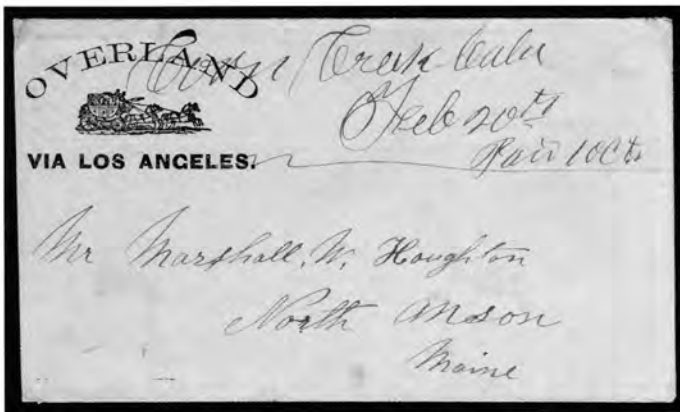 OVERLAND
VIA LOS ANGELES.
Creek Cala
Feb 20th
Paid 10Cts
Mr Marshall, W, Houghton
North Anson
Maine